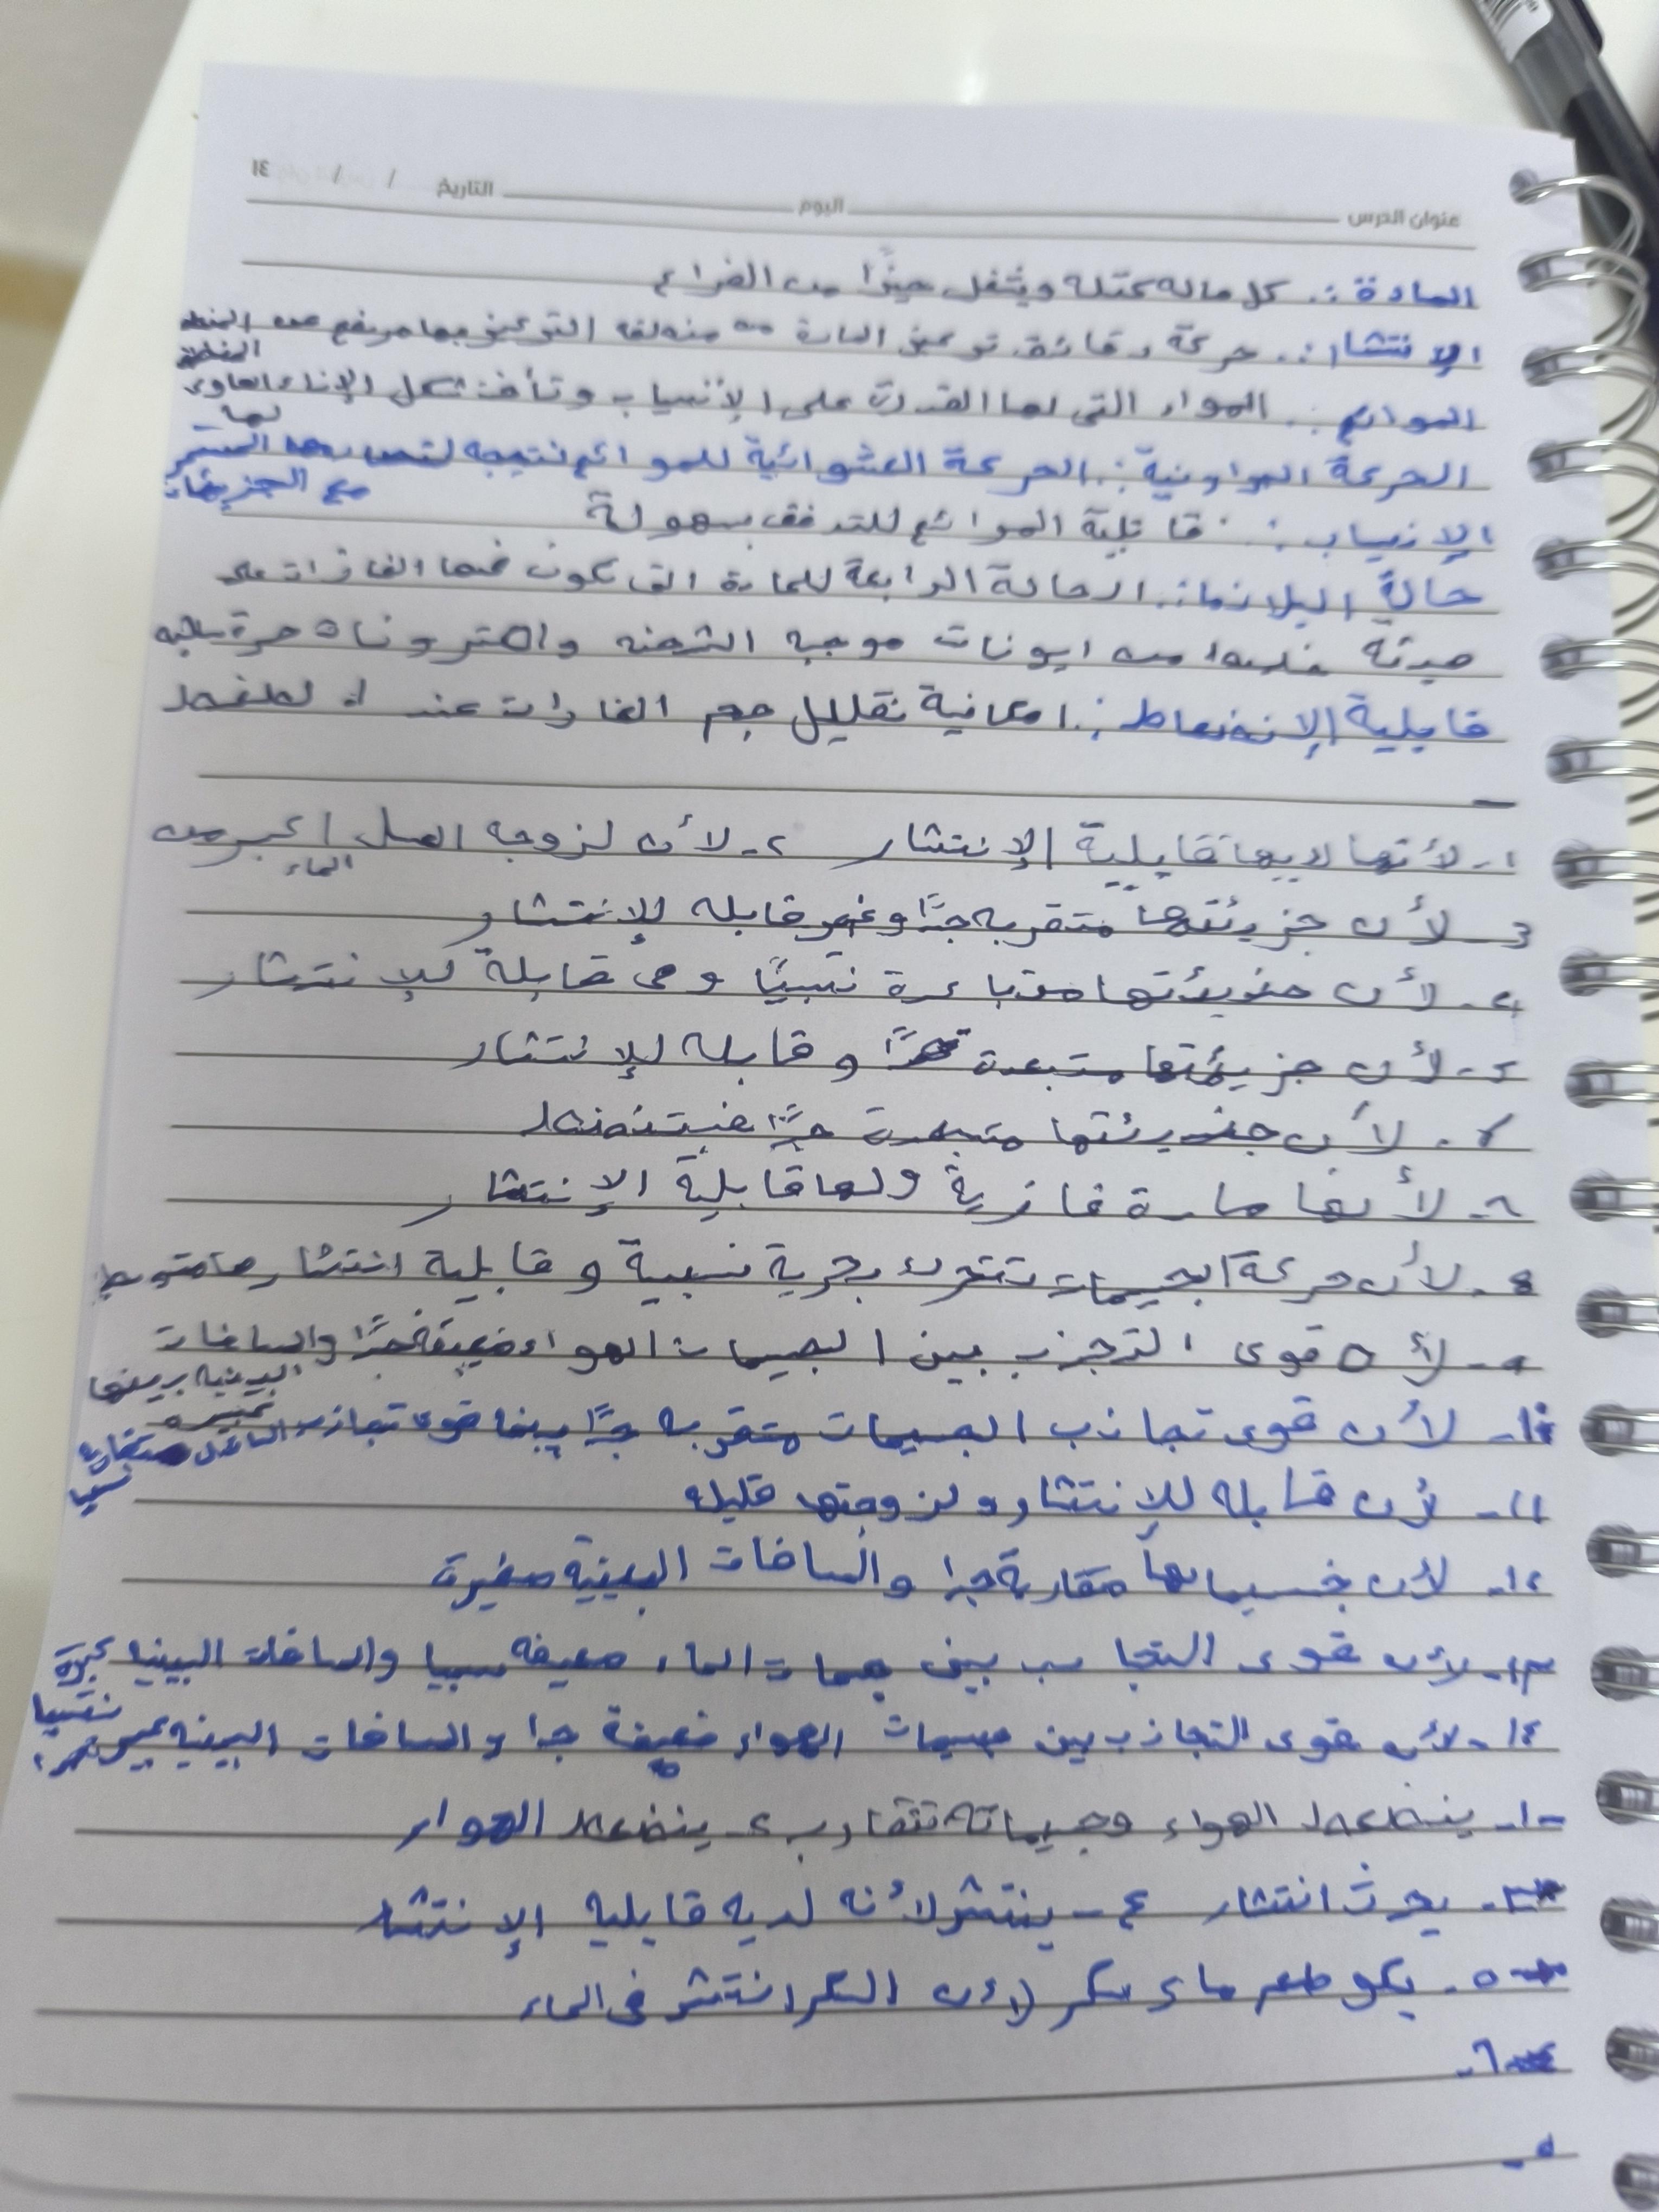 عنوان الدرس اليوم التاريخ / / ١٤
المادة :. كل ماله كتله ويشغل حيزًا من الفراغ
الإنتشار :. حركة دقائق المادة من منطقة التركيز من
الموائع :. المواد التي لها القدرة على الإنسياب وتأخذ شكل الإناء الحاوي
لها
الحركة البراونية :. الحركة العشوائية للموائع نتيجه المستمر
مع الجزيئات
الإنسياب :. قابلية الموائع للتدفق بسهولة
حالة البلازما :. الحالة الرابعة للمادة التي تكون فيها الغازات على
من ايونات موجبه الشحنه والكترونات حرة سالبه
قابلية الإنضغاط :. امكانية تقليل حجم الغازات عند
١- لأنها لديها قابلية الإنتشار ٢- لأن لزوجه العسل اكبر من
الماء
٣- لأن جزيئتها متقربه جدًا وغير قابله للإنتشار
٤- لأن جزيئتها متباعدة نسبيًا وهي قابلة للإنتشار
لأن جزيئتها متبعدة جدًا و قابله للإنتشار
لأن جزيئتها متبعدة جدًا فبتنضغط
لأنها مادة غازية ولها قابلية الإنتشار
٨- لأن حركة الجسيمات تتحرك بحرية نسبية و قابلية انتشارها متوسط
٩- لأن قوى التجزب بين الجسيمات الهواء ضعيفة جدًا والمسافات
البينيه بينها
كبيره
١٠- لأن قوى تجاذب الجسيمات متقربه جدًا بينما قوى تجاذب السائل
نسبيا
١١- لأن قابله للإنتشار ولزوجتها قليله
١٢- لأن جسيماتها متقاربة جدا والمسافات البينية صغيرة
١٣- لأن قوى التجاذب بين جسيمات الماء ضعيفه نسبيا والمسافات البينيه كبيرة
نسبيا
١٤- لأن قوى التجاذب بين جسيمات الهواء ضعيفة جدا والمسافات البينيه
١- ينضغط الهواء وجسيماته تتقارب ٢- ينضغط الهواء
٣- يحدث انتشار ٤- ينتشر لأنه لديه قابلية الإنتشار
٥- يكو طعم ماء سكر لأن السكر انتشر في الماء
٦-